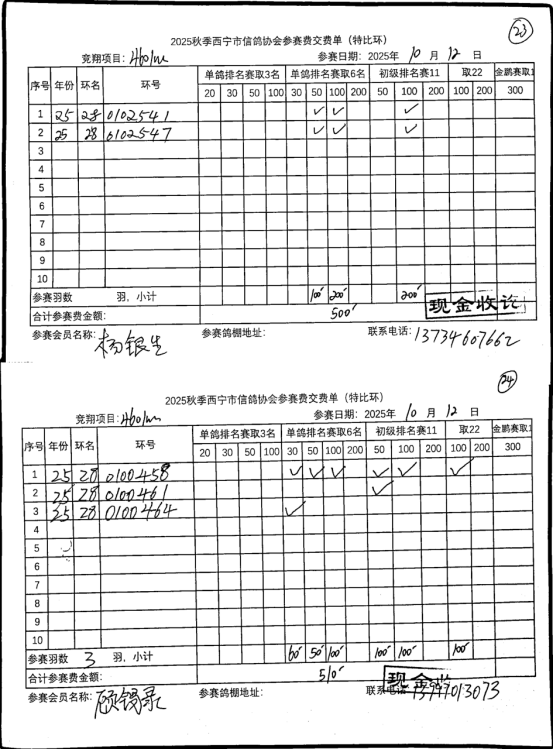 23
2025秋季西宁市信鸽协会参赛费交费单（特比环）
竞翔项目：460km 参赛日期：2025年 10 月 12 日
序号 年份 环名 环号 单鸽排名赛取3名 单鸽排名赛取6名 初级排名赛11 取22 金鹏赛取1
20 30 50 100 30 50 100 200 50 100 200 100 200 300
1 25 28 0102541 ✓ ✓ ✓
2 25 28 0102547 ✓ ✓ ✓
3
4
5
6
7
8
9
10
参赛羽数 羽，小计 100 200 200
合计参赛费金额： 500 现金收讫
参赛会员名称：杨银生 参赛鸽棚地址： 联系电话：13734607662
24
2025秋季西宁市信鸽协会参赛费交费单（特比环）
竞翔项目：460km 参赛日期：2025年 10 月 12 日
序号 年份 环名 环号 单鸽排名赛取3名 单鸽排名赛取6名 初级排名赛11 取22 金鹏赛取1
20 30 50 100 30 50 100 200 50 100 200 100 200 300
1 25 28 0100458 ✓ ✓ ✓ ✓ ✓ ✓
2 25 28 0100461 ✓
3 25 28 0100464 ✓
4
5
6
7
8
9
10
参赛羽数 3 羽，小计 60 50 100 100 100 100
合计参赛费金额： 510 现金收
参赛会员名称：顾锡录 参赛鸽棚地址： 联系电话